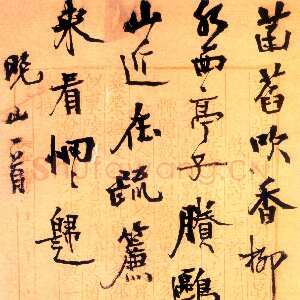 菡萏吹香柳
西〻亭子賸鷗
山近在疏簾
來看
晚山一首